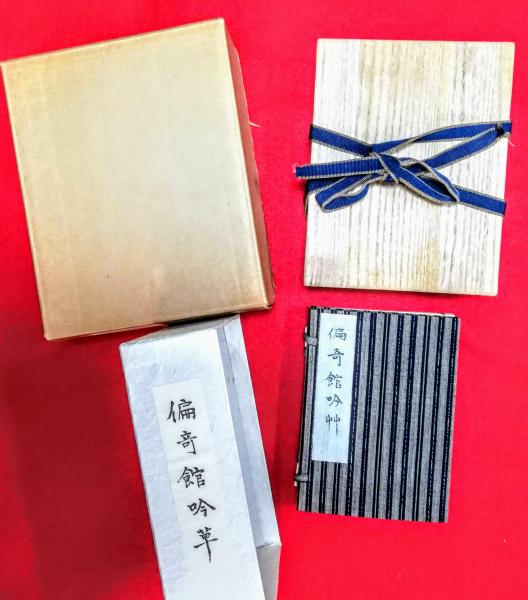 偏奇館吟草
偏奇館吟艸